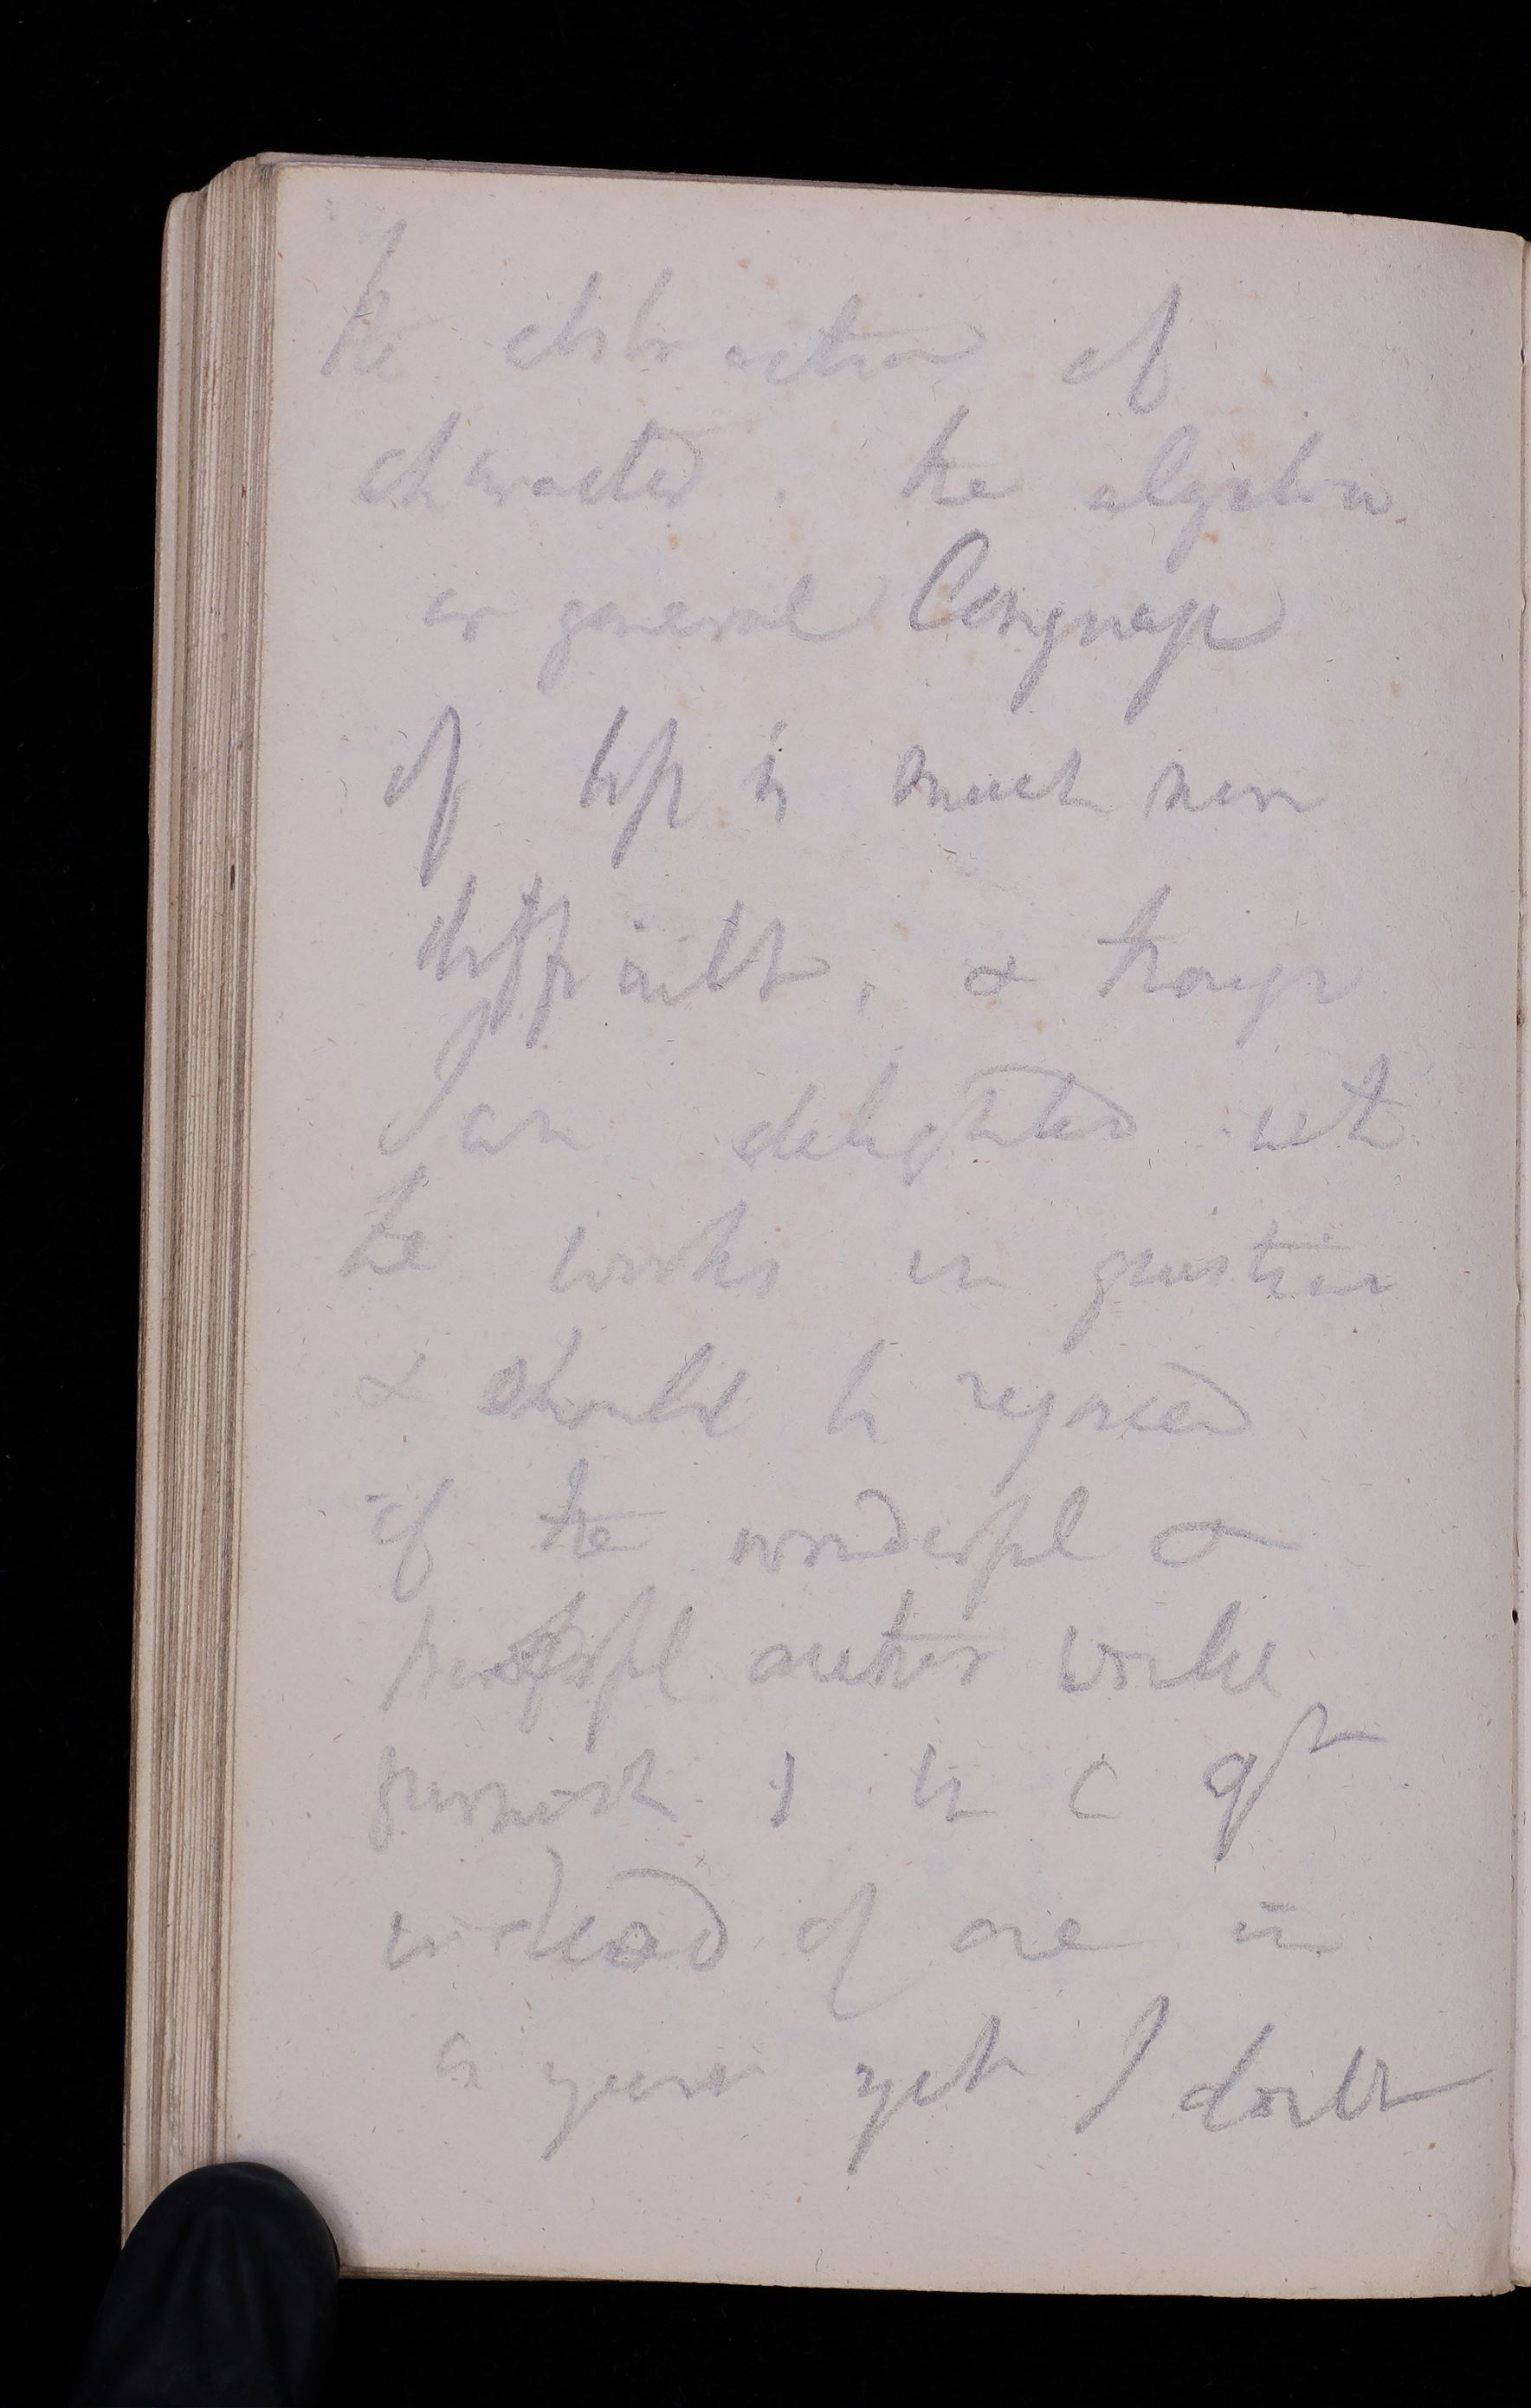 the abstraction of
character. the algebra
or general language
of life is much more
difficult, & though
I am delighted with
the works in question
& should be rejoiced
if the wonderful &
powerful author would
furnish 1 in a qr
instead of one in
a year yet I doubt